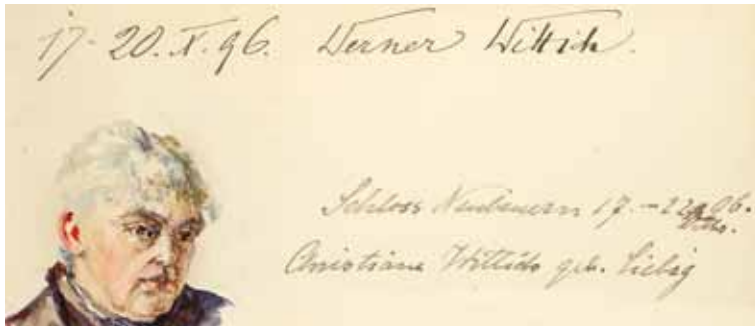 17-20.X.96. Werner Wittich.
Schloss Neubeuern 17.-22 06.
Christiane Wittich geb. Liebig